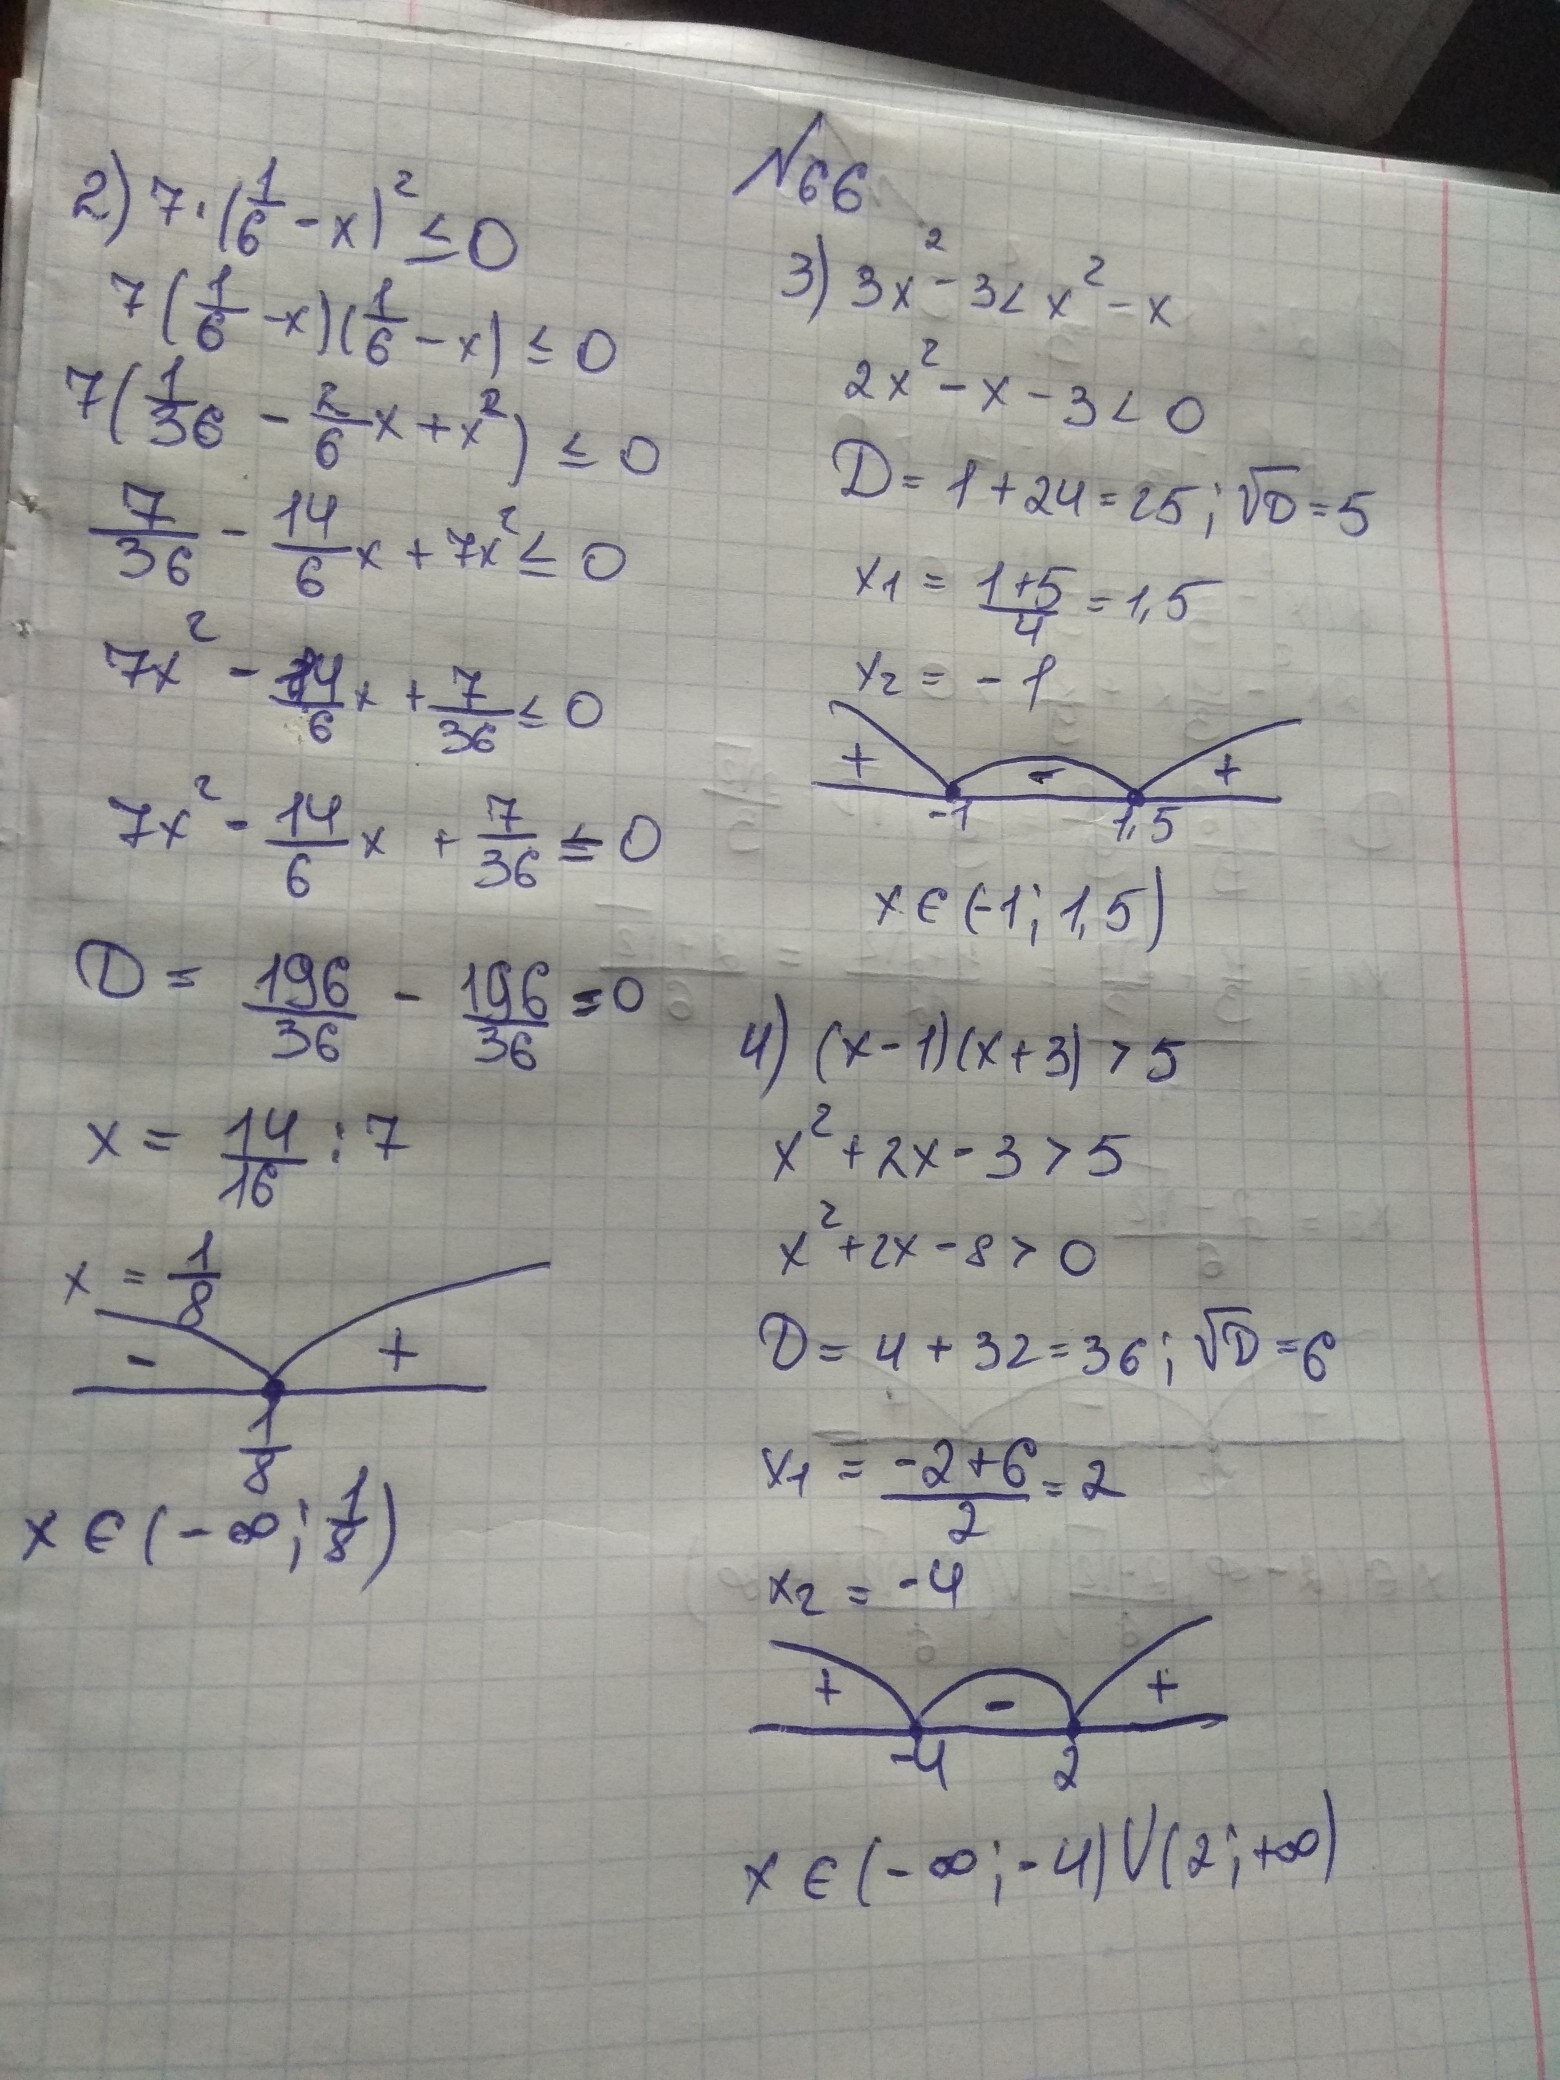 №66
2) 7·(1/6 - x)² ≤ 0
7(1/6 - x)(1/6 - x) ≤ 0
7(1/36 - 2/6x + x²) ≤ 0
7/36 - 14/6x + 7x² ≤ 0
7x² - 14/6x + 7/36 ≤ 0
7x² - 14/6x + 7/36 ≤ 0
D = 196/36 - 196/36 = 0
x = 14/16 : 7
x = 1/8
- +
1/8
x ∈ (-∞; 1/8)
3) 3x² - 3 < x² - x
2x² - x - 3 < 0
D = 1 + 24 = 25; √D = 5
x1 = (1+5)/4 = 1,5
x2 = -1
+ - +
-1 1,5
x ∈ (-1; 1,5)
4) (x-1)(x+3) > 5
x² + 2x - 3 > 5
x² + 2x - 8 > 0
D = 4 + 32 = 36; √D = 6
x1 = (-2+6)/2 = 2
x2 = -4
+ - +
-4 2
x ∈ (-∞; -4) ∪ (2; +∞)